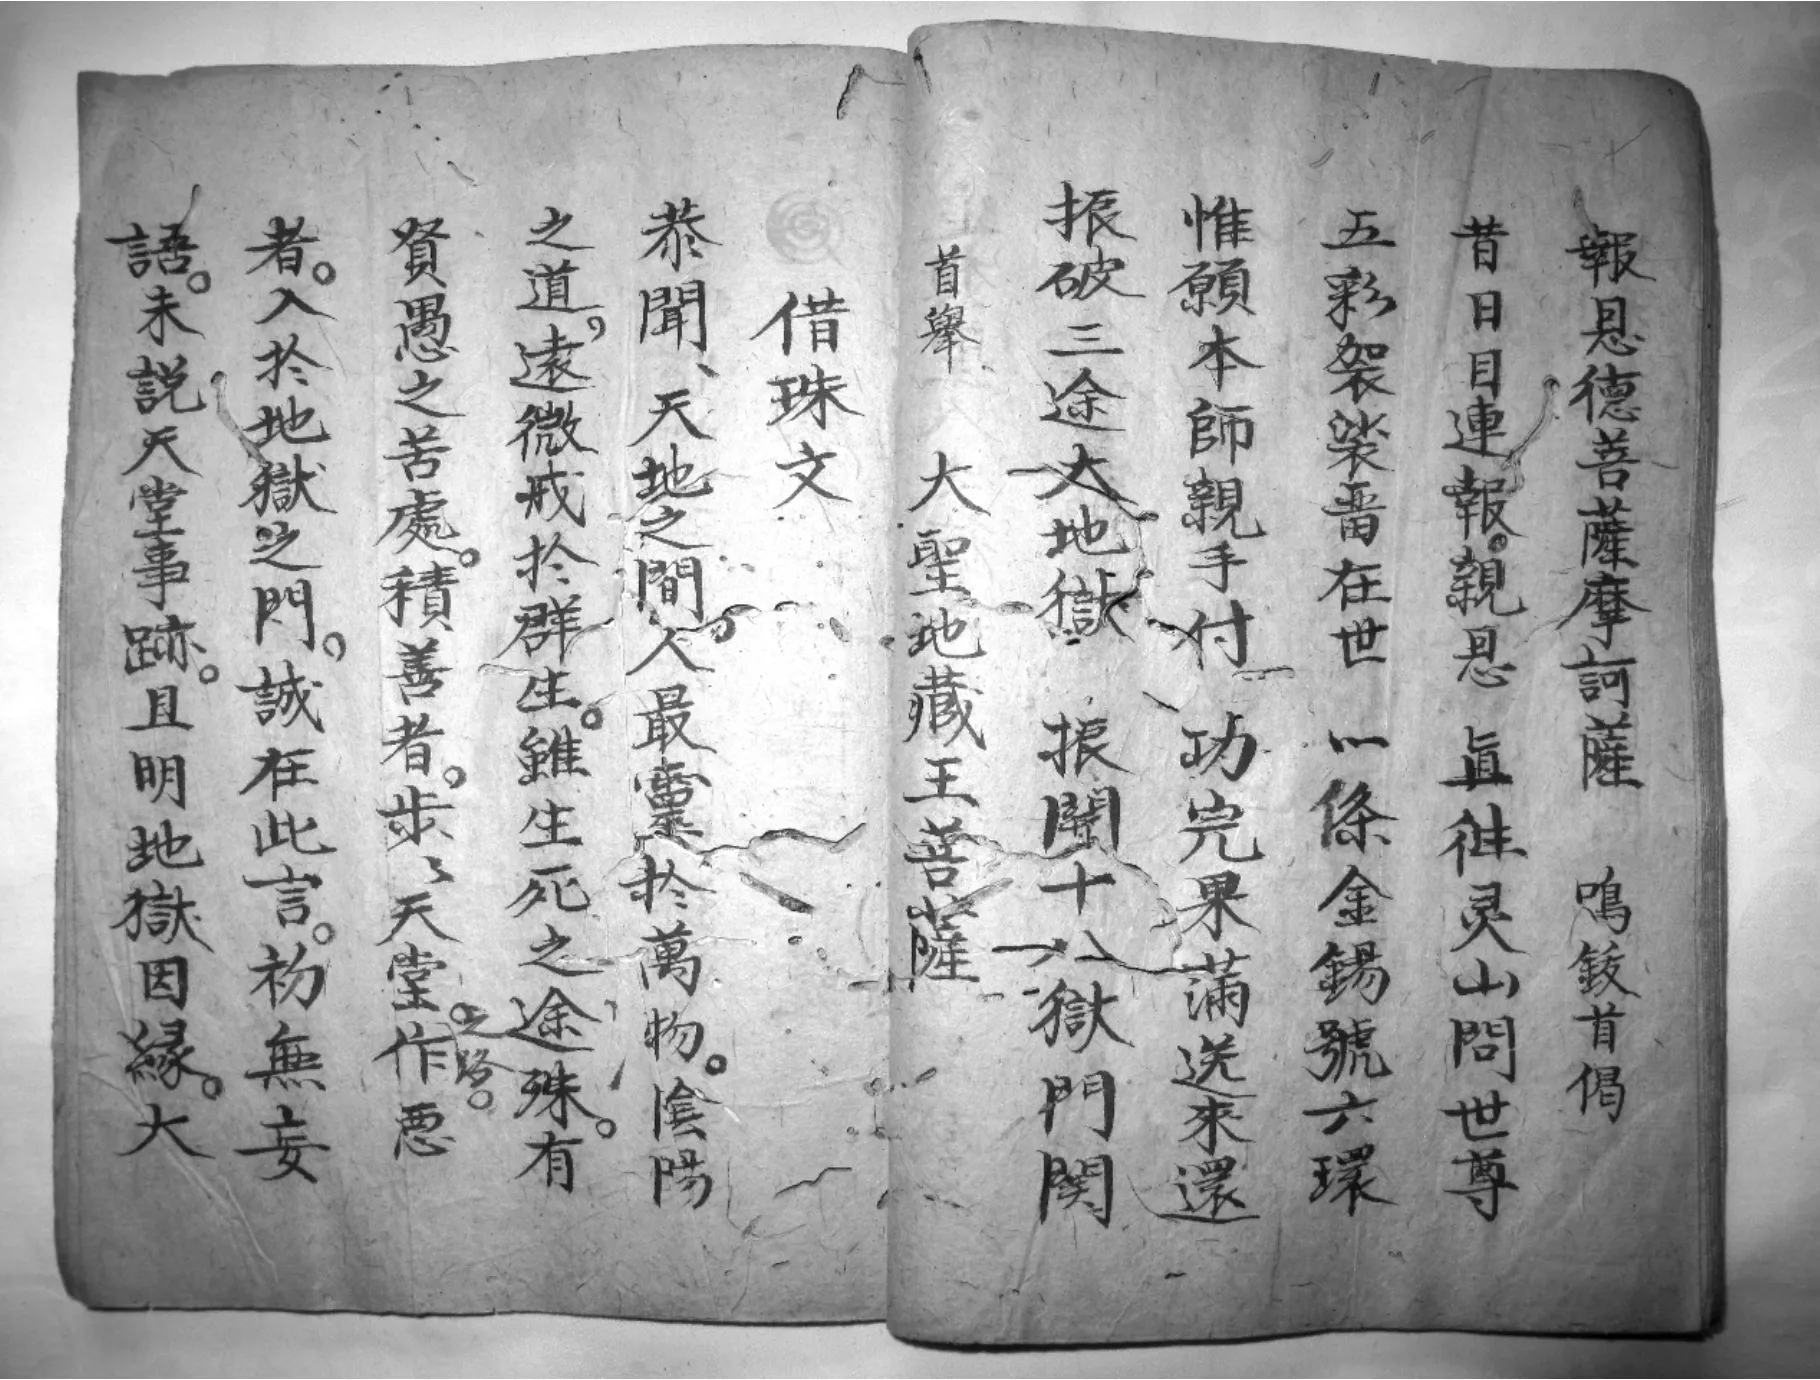 報恩德菩薩摩訶薩 鳴鈸首偈
昔日目連報。親恩 眞徃灵山問世尊
五彩袈裟畨在世 一條金錫號六環
惟願本師親手付 功完果滿送來還
振破三途大地獄 振開十八獄門関
首舉 大聖地藏王菩薩
借珠文
恭聞、天地之間。人最靈於萬物。陰陽
之道，遠微戒於群生。雖生死之途殊。有
貧愚之苦處。積善者。步、天堂之路。作恶
者。入於地獄之門。誠在此言。初無妄
語。未説天堂事跡。且明地獄因縁。大